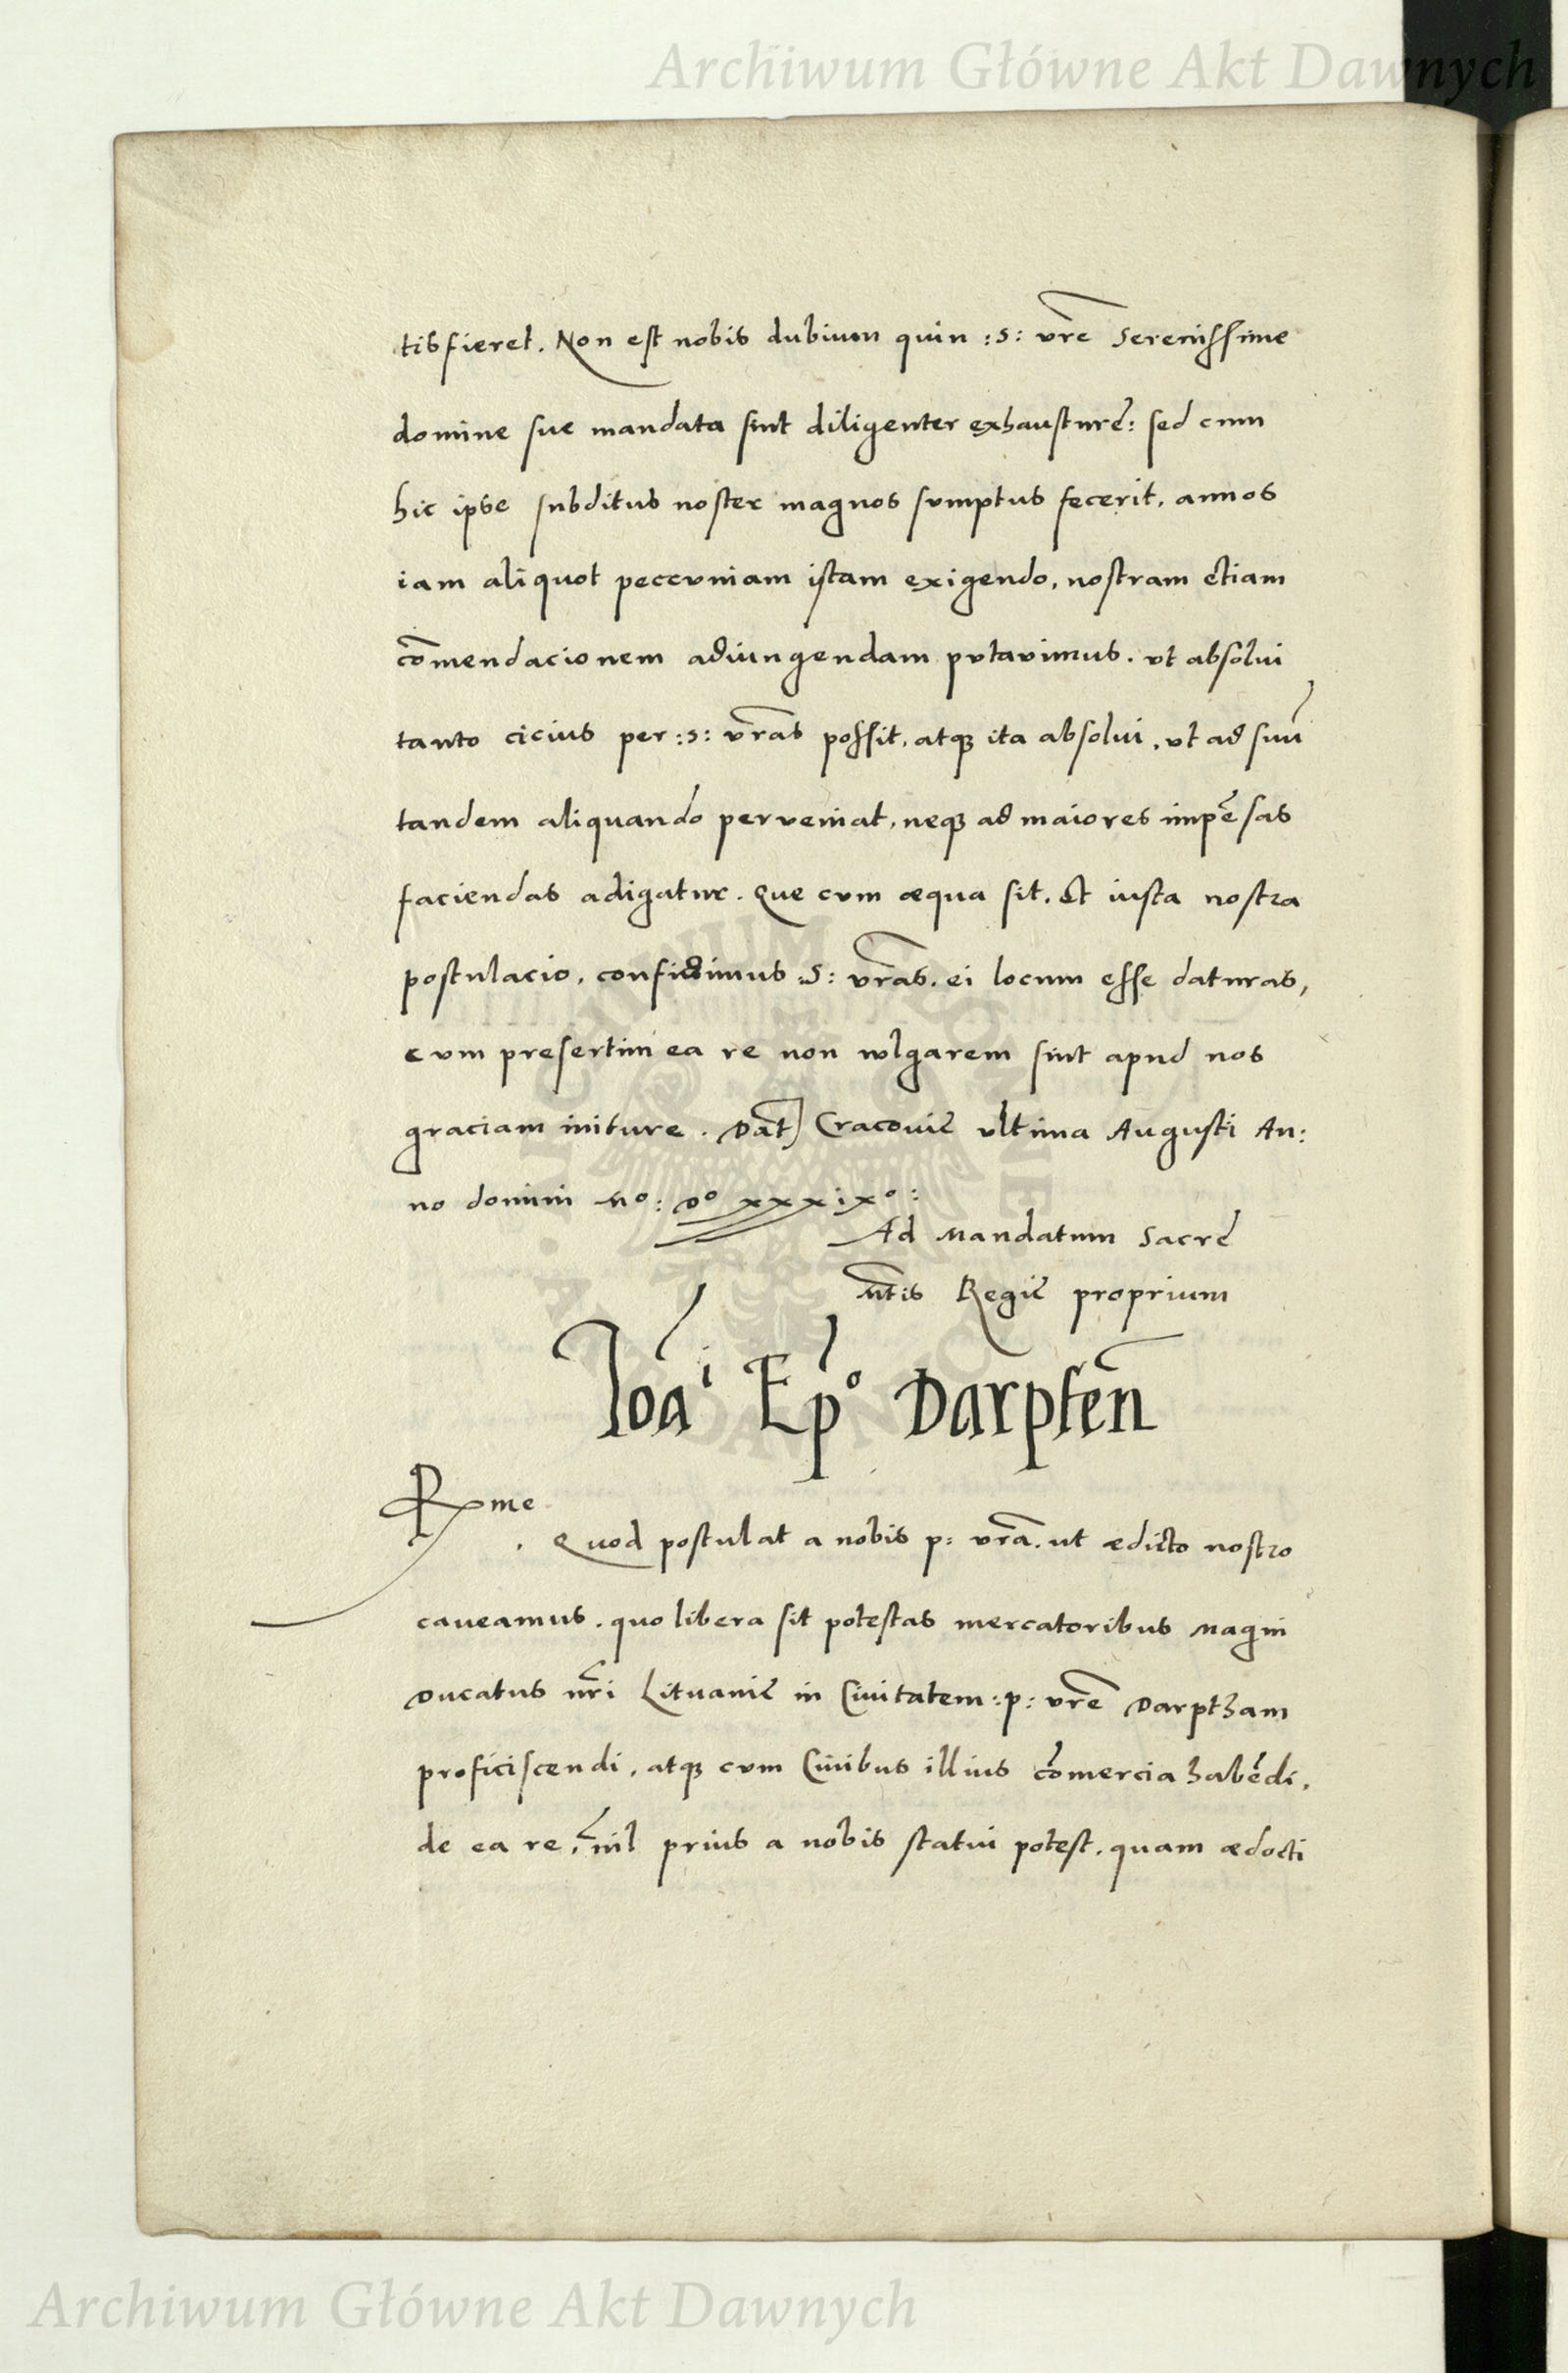 Archiwum Główne Akt Dawnych
tisfieret. Non est nobis dubium quin :S: vr̃e Serenissime
domine sue mandata sint diligenter exhausturẽ: sed cum
hic ipse subditus noster magnos sumptus fecerit, annos
iam aliquot peccuniam istam exigendo, nostram etiam
cõmendacionem adiungendam putavimus. vt absolui
tanto cicius per :S: vr̃as possit, atq3 ita absolui, vt ad suũ
tandem aliquando perveniat, neq3 ad maiores impẽsas
faciendas adigatur. Que cum æqua sit. Et iusta nostra
postulacio, confidimus :S: vr̃as. ei locum esse daturas,
cum presertim ea re non wlgarem sint apud nos
graciam initure. Dat̃ Cracovie ultima Augusti An:
no domini Mº: Dº xxxixº:
Ad Mandatum Sacre
Mt̃is Regie proprium
Ioãi Ep̃º Darpteñ
Rme
. Quod postulat a nobis p: vr̃a. ut ædicto nostro
caveamus. quo libera sit potestas mercatoribus Magni
Ducatus nr̃i Lituanie in Civitatem :p: vr̃e Darptham
proficiscendi, atq3 cum Civibus illius cõmercia habẽdi,
de ea re, nil prius a nobis statui potest, quam ædocti
Archiwum Główne Akt Dawnych